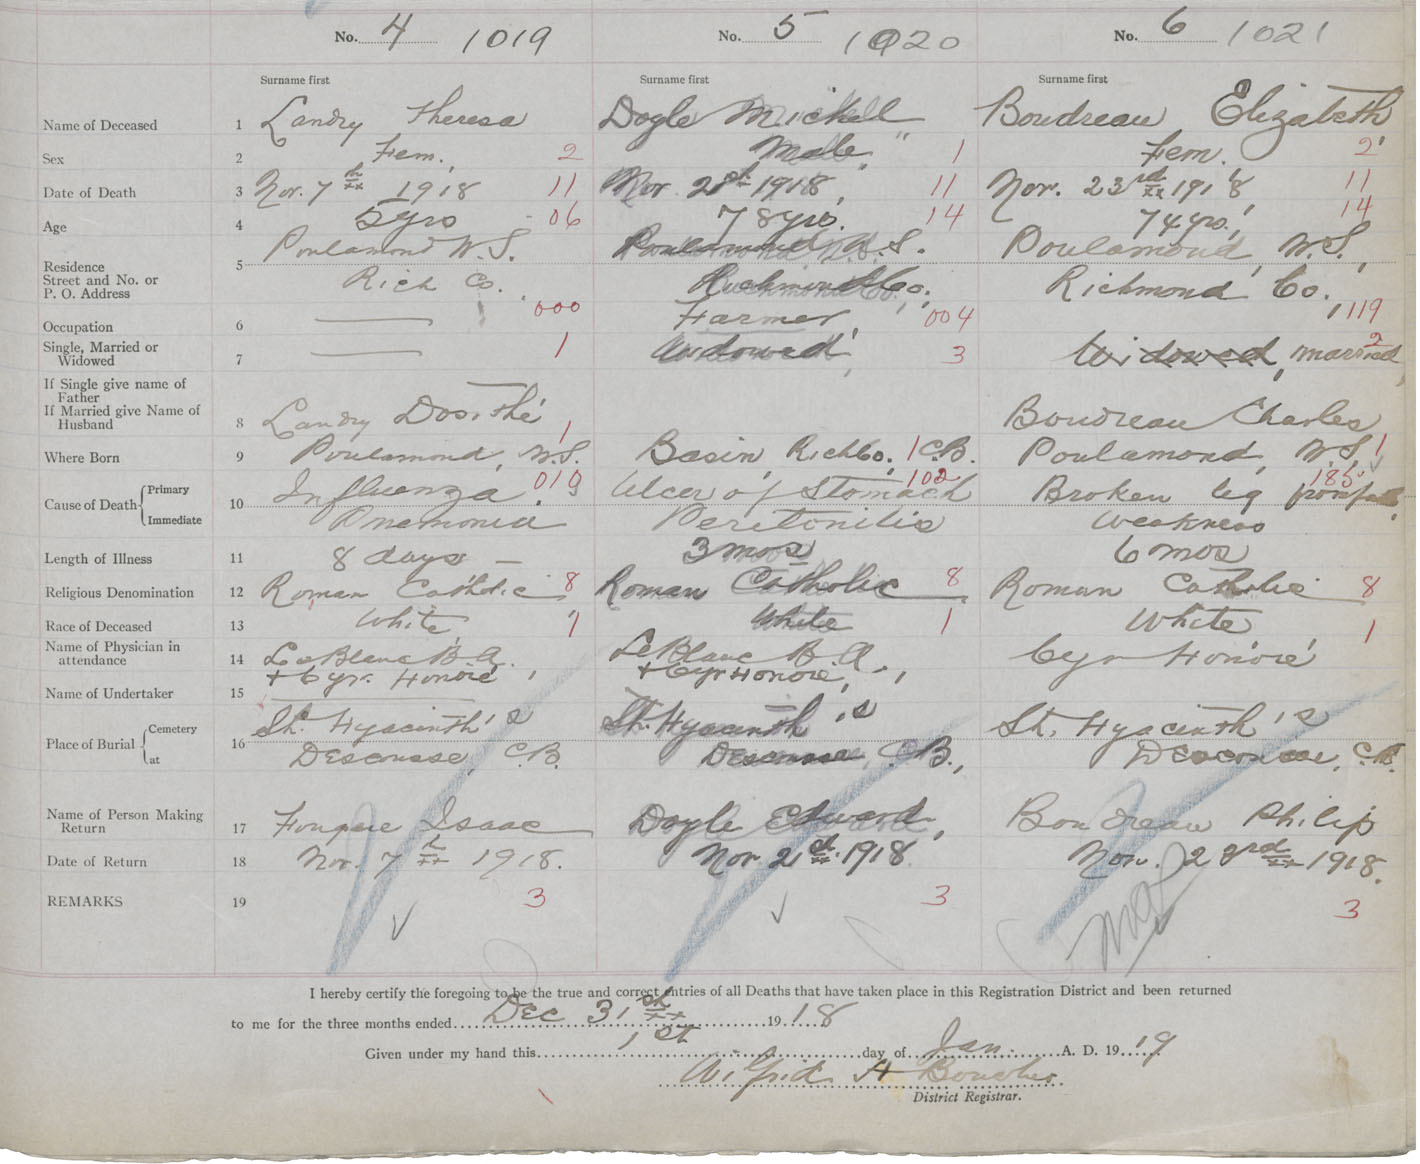 No. 4 1019
No. 5 1020
No. 6 1021
Surname first Surname first Surname first
Name of Deceased 1 Landry Theresa Doyle Boudreau Elizabeth
Sex 2 Fem. 2 Male 1 Fem. 2
Date of Death 3 Nov. 7th 1918 11 Nov. 1918 11 Nov. 23rd 1918 11
Age 4 5 yrs 06 78 yrs. 14 74 yrs. 14
Residence
Street and No. or
P. O. Address
5 Poulamond N.S. Poulamond N.S. Poulamond, N.S.,
Rich Co. Richmond Co. Richmond Co.
Occupation 6 — 000 Farmer, 004 119
Single, Married or
Widowed
7 — 1 Widowed 3 Widowed, married, 2
If Single give name of
Father
If Married give Name of
Husband
8 Landry Dosithé 1 Boudreau Charles
Where Born 9 Poulamond, N.S. Basin, Rich Co., 1 C.B. Poulamond, N.S. 1
Cause of Death Primary Immediate 10
Influenza 010 Ulcer of Stomach 102 Broken leg from fall, 185
Pnemonia Peritonitis Weakness
Length of Illness 11 8 days — 3 mos 6 mos
Religious Denomination 12 Roman Catholic 8 Roman Catholic 8 Roman Catholic 8
Race of Deceased 13 White 1 White 1 White, 1
Name of Physician in
attendance
14 LeBlanc B. A. LeBlanc B. A., Cyr Honoré
+ Cyr. Honoré, + Cyr Honoré,
Name of Undertaker 15 —
Place of Burial Cemetery at 16
St. Hyacinth's St. Hyacinth's St. Hyacinth's
Descousse, C.B. Descousse, C.B., Descousse, C.B.
Name of Person Making
Return
17 Isaac Doyle Edward, Boudreau Philip
Date of Return 18 Nov. 7th 1918. Nov. 21st. 1918 Nov. 23rd 1918.
REMARKS 19 3 3 3
I hereby certify the foregoing to be the true and correct entries of all Deaths that have taken place in this Registration District and been returned
to me for the three months ended Dec 31st 1918
Given under my hand this 1st day of Jan. A. D. 1919
Wilfrid A Boucher.
District Registrar.